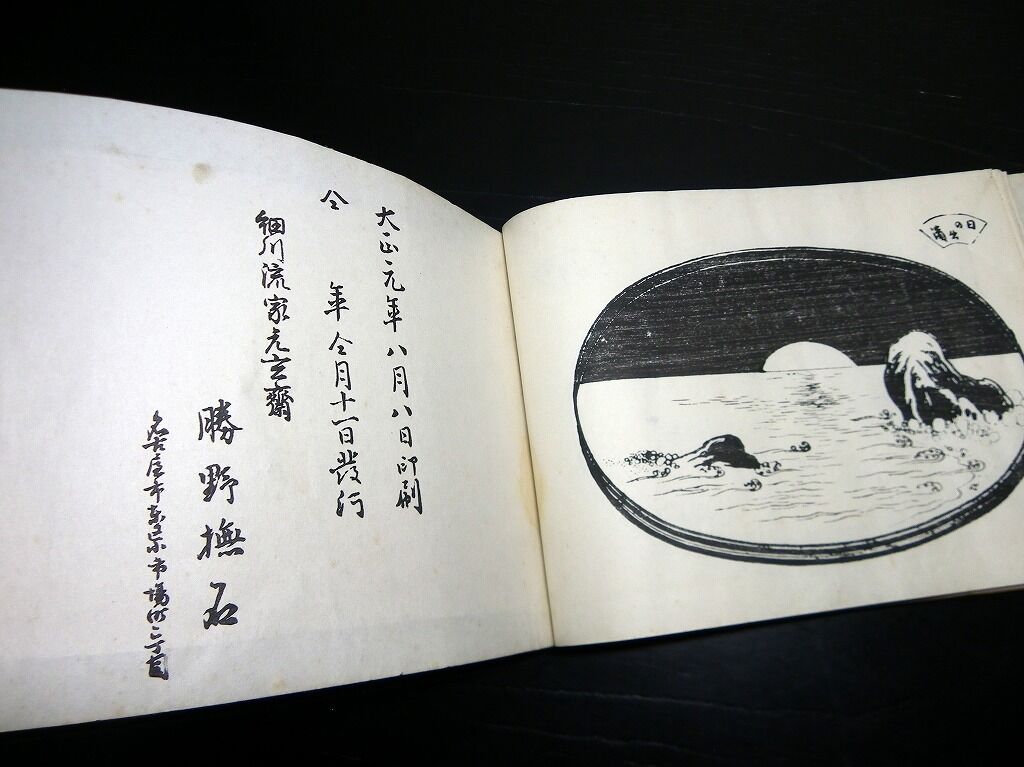 日の出
大正元年八月八日印刷
仝 年仝月十一日發行
細川流家元 齋
勝野撫石
名古屋市 市場町 丁目